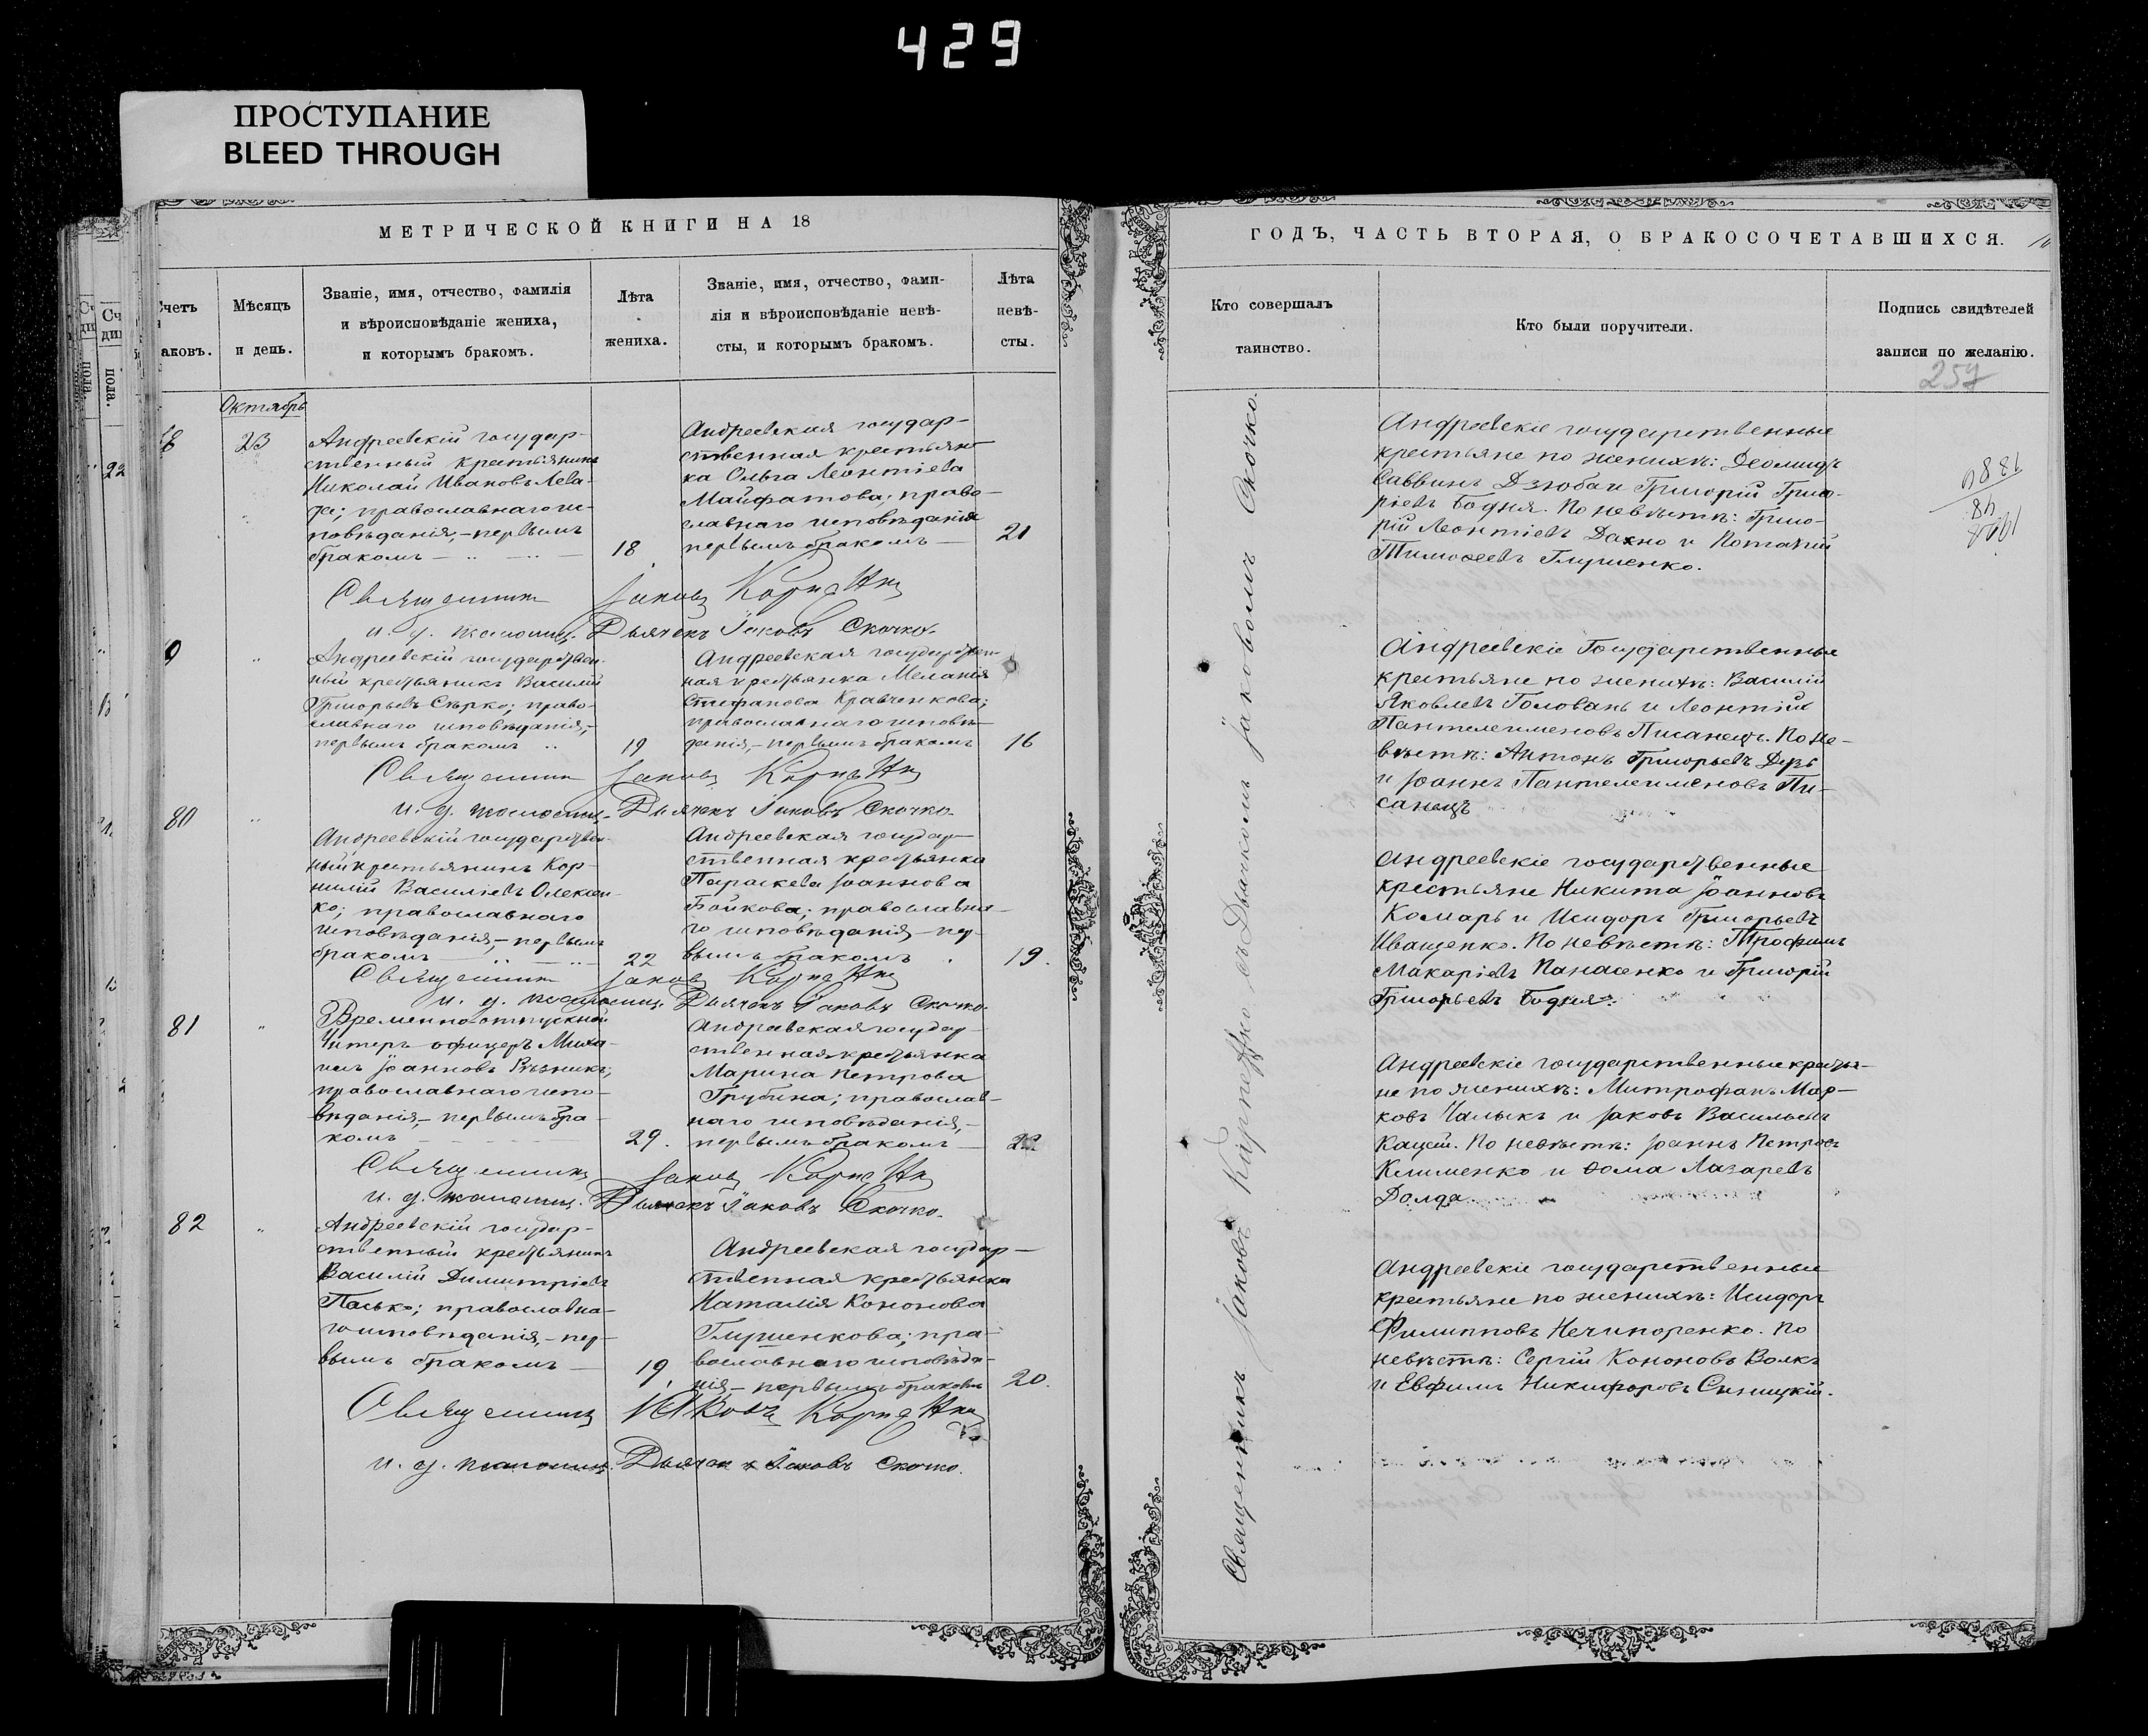 429
ПРОСТУПАНИЕ
BLEED THROUGH
МЕТРИЧЕСКОЙ КНИГИ НА 18
Счетъ
аковъ.
Мѣсяцъ
и день.
Званіе, имя, отчество, фамилія
и вѣроисповѣданіе жениха,
и которымъ бракомъ.
Лѣта
жениха.
Званіе, имя, отчество, фами-
лія и вѣроисповѣданіе невѣ-
сты, и которымъ бракомъ.
Лѣта
невѣ-
сты.
Октябрь
8
23
Андреевскій государ-
ственный крестьянинъ
Николай Ивановъ Лева-
да; православнаго ис-
повѣданія,- первымъ
бракомъ
18
Андреевская государ-
ственная крестьян-
ка Ольга Леонтіева
Майфатова; право-
славнаго исповѣданія
первымъ бракомъ
21
Священникъ Іаковъ
и. д. псаломщ. Дьячекъ Іаковъ Скочко.
9
Андреевскій государствен-
ный крестьянинъ Василій
Григорьевъ Сѣрко; право-
славнаго исповѣданія,-
первымъ бракомъ
19
Андреевская государствен-
ная крестьянка Меланія
Стефанова Кравченкова;
православнаго исповѣ-
данія,- первымъ бракомъ
16
Священникъ Іаковъ
и. д. псаломщ. Дьячекъ Іаковъ Скочко.
80
Андреевскій государствен-
ный крестьянинъ Кор-
нилій Василіевъ Олексен-
ко; православнаго
исповѣданія,- первымъ
бракомъ
22
Андреевская государ-
ственная крестьянка
Параскева Іоаннова
Бойкова; православна-
го исповѣданія,- пер-
вымъ бракомъ
19.
Священникъ Іаковъ
и. д. псаломщ. Дьячекъ Іаковъ Скочко.
81
Временно-отпускной
Унтеръ-офицеръ Миха-
илъ Іоанновъ Рѣзникъ;
православнаго испо-
вѣданія,- первымъ бра-
комъ
29.
Андреевская государ-
ственная крестьянка
Марина Петрова
Грубина; православ-
наго исповѣданія,-
первымъ бракомъ
22
Священникъ Іаковъ
и. д. псаломщ. Дьячекъ Іаковъ Скочко.
82
Андреевскій государ-
ственный крестьянинъ
Василій Димитріевъ
Пасько; православна-
го исповѣданія,- пер-
вымъ бракомъ
19
Андреевская государ-
ственная крестьянка
Наталія Кононова
Глушенкова; пра-
вославнаго исповѣда-
нія,- первымъ бракомъ
20.
Священникъ Іаковъ
и. д. псаломщ. Дьячекъ Іаковъ Скочко.
ГОДЪ, ЧАСТЬ ВТОРАЯ, О БРАКОСОЧЕТАВШИХСЯ.
Кто совершалъ
таинство.
Кто были поручители.
Подпись свидѣтелей
записи по желанію.
257
Священникъ Іаковъ Карпенко съ Дьячкомъ Іаковомъ Скочко.
Андреевскіе государственные
крестьяне по женихѣ: Деомидъ
Саввинъ Дзюба и Григорій Григо-
рьевъ Бодня. По невѣстѣ: Григо-
рій Леонтіевъ Дахно и Потапій
Тимоѳеевъ Глушенко.
Андреевскіе Государственные
крестьяне по женихѣ: Василій
Яковлевъ Головань и Леонтій
Пантелеимоновъ Писанецъ. По не-
вѣстѣ: Антонъ Григорьевъ
и Іоаннъ Пантелеимоновъ Пи-
санецъ
Андреевскіе государственные
крестьяне Никита Іоанновъ
Комарь и Исидоръ Григорьевъ
Иващенко. По невѣстѣ: Трофимъ
Макаріевъ Панасенко и Григорій
Григорьевъ Бодня.
Андреевскіе государственные крестья-
не по женихѣ: Митрофанъ Мар-
ковъ Чалыкъ и Іаковъ Васильевъ
Кацай. По невѣстѣ: Іоаннъ Петровъ
Клименко и Ѳома Лазаревъ
Долда
Андреевскіе государственные
крестьяне по женихѣ: Исидоръ
Филипповъ Нечипоренко. По
невѣстѣ: Сергій Кононовъ Волкъ
и Евфимъ Никифоровъ Синицкій.